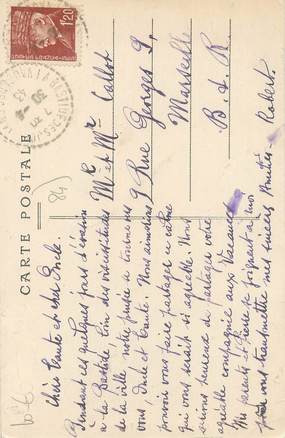 CARTE POSTALE
1F20
LA BASTIDE
30
43
84)
Chère Tante et cher Oncle.
Pendant ces quelques jours d'évasion
à la Bastide loin des vicissitudes
de la ville notre pensée se tourne vers
vous Oncle et Tante. Nous aimerions
pouvoir vous faire partager ce calme
qui vous serait si agréable. Nous
serions heureux de partager votre
agréable compagnie aux Vacances
Mes parents et Pierre se joignent à moi
pour vous transmettre mes sincères Amitiés
Robert.
Mr et Mme Callot
9 Rue Georges
Marseille
B d R